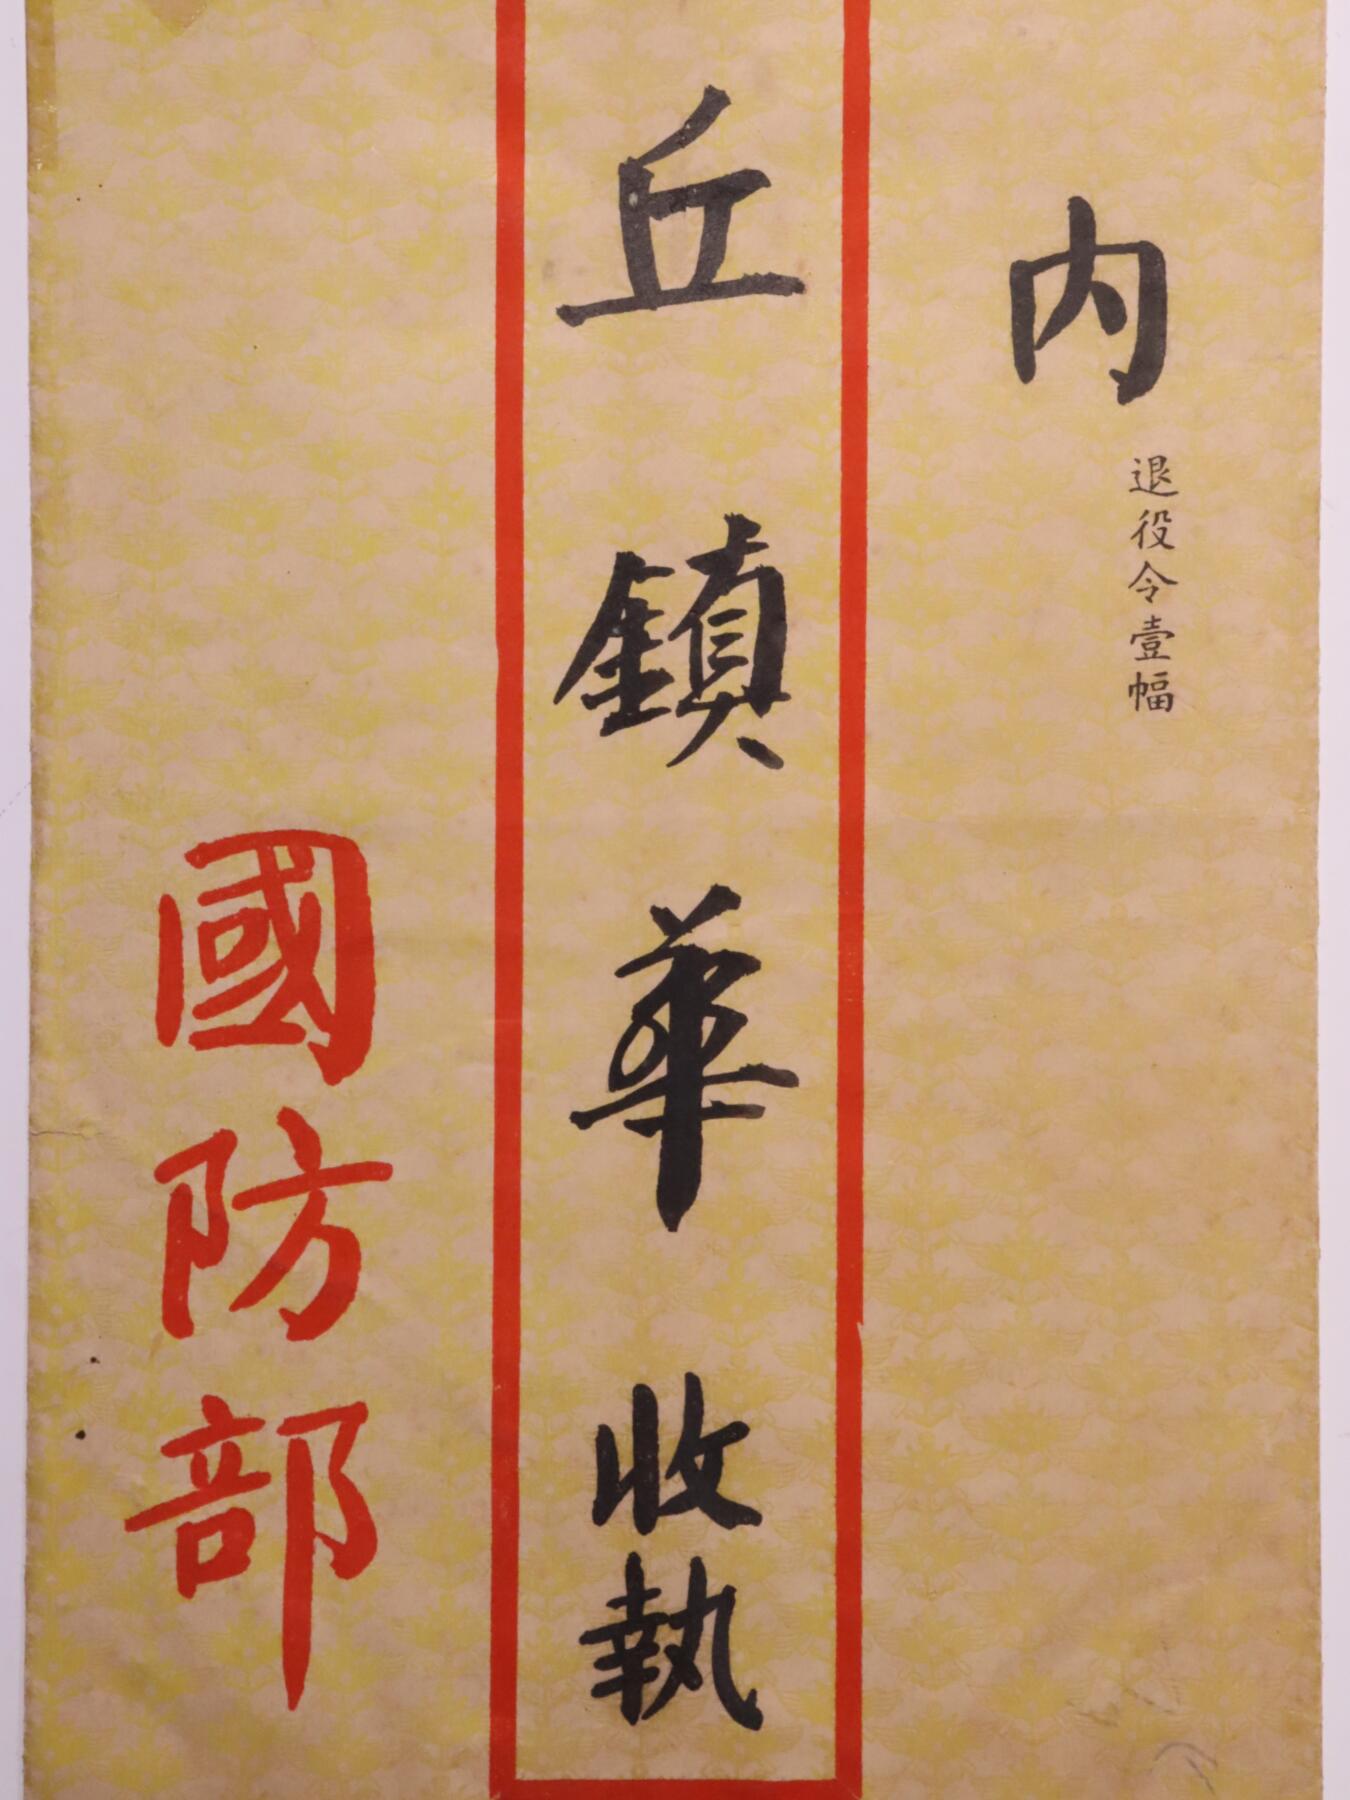 内
退役令壹幅
丘鎮華收執
國防部